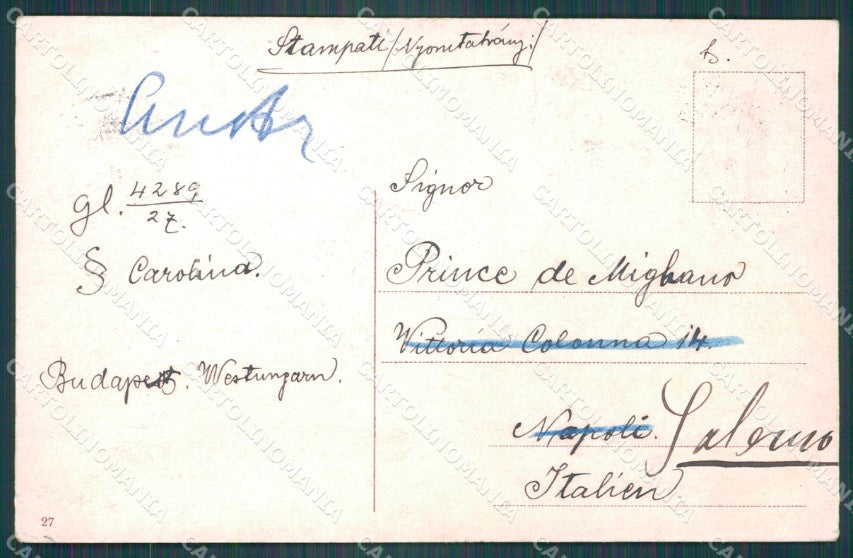 Stampati/Nyomtatvány:/
b.
gl. 4289
27.
§ Carolina.
Budapest. Westungarn.
Signor
Prince de Migliano
Vittoria Colonna 14.
Napoli. Salerno
Italien
27
CARTOLINOMANIA